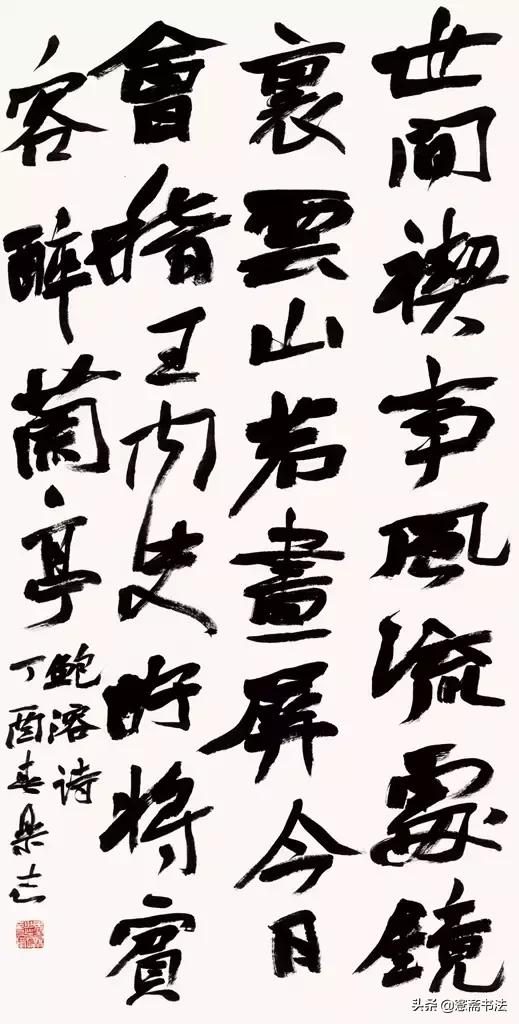 世間禊事風流處鏡
裏雲山若畫屏今日
會稽王内史好將賓
客醉蘭亭
鮑溶诗
丁酉春
头条 @斋书法